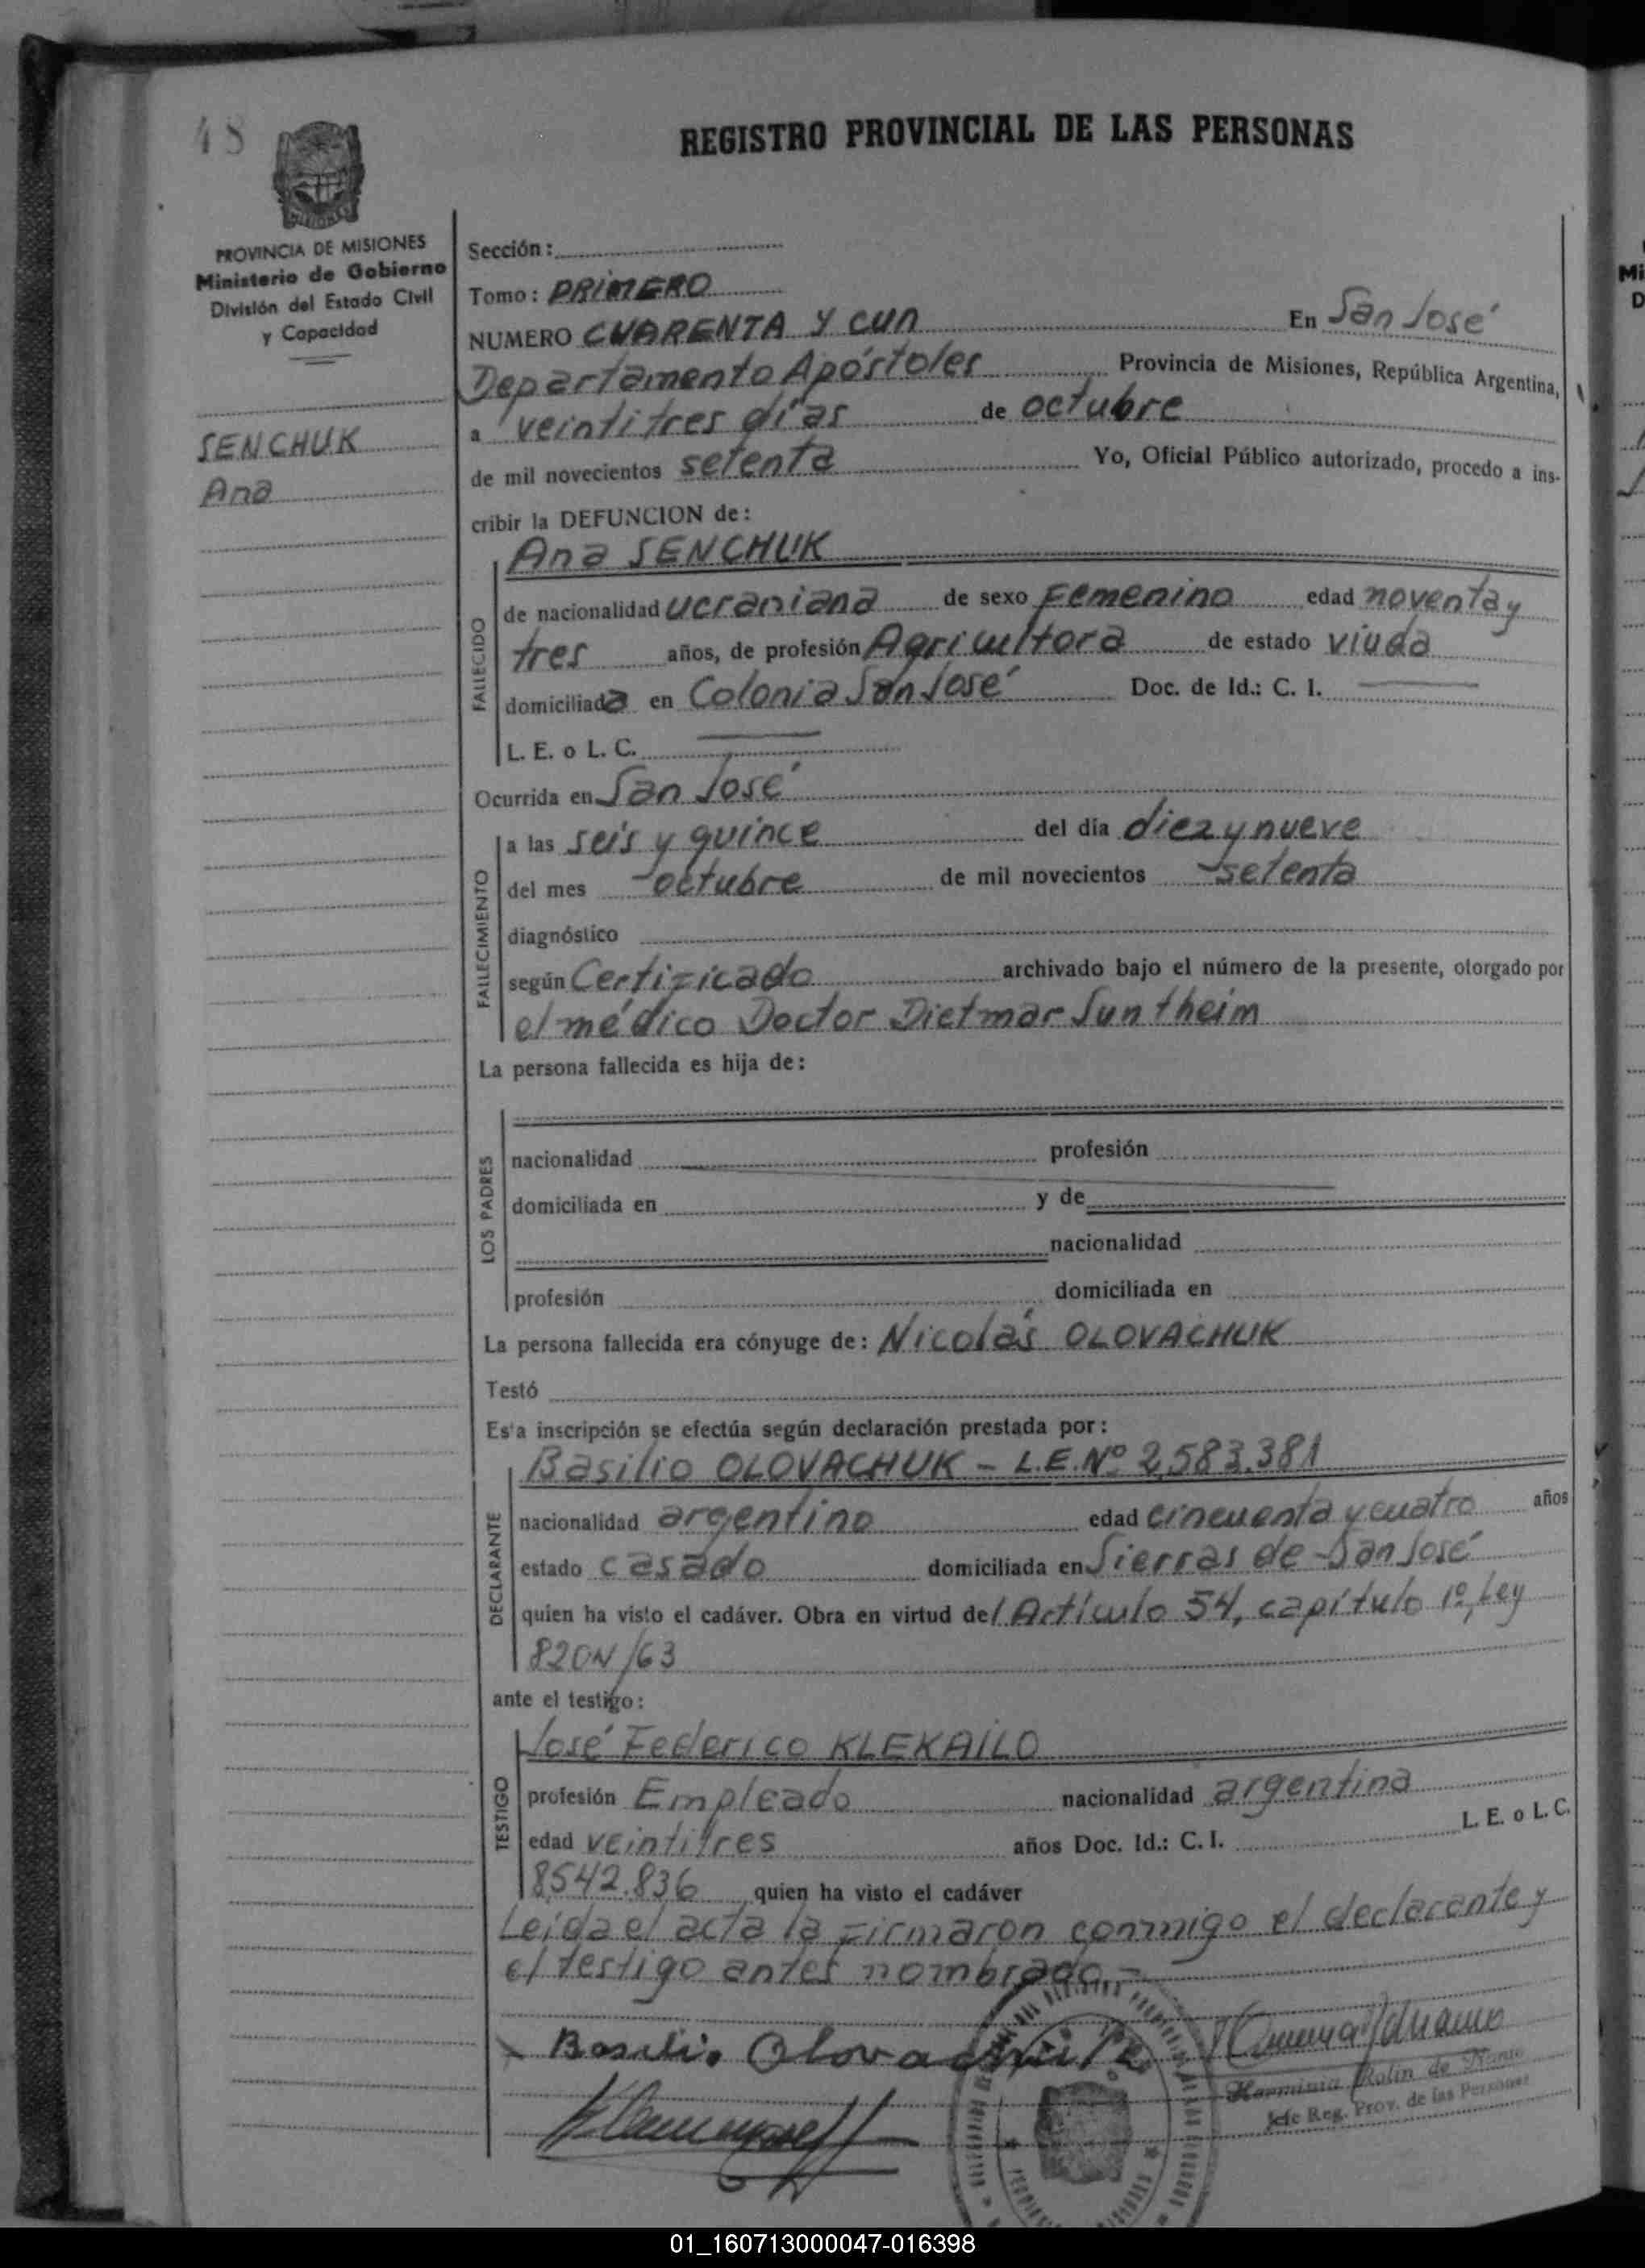 48
REGISTRO PROVINCIAL DE LAS PERSONAS
MISIONES
PROVINCIA DE MISIONES
Ministerio de Gobierno
División del Estado Civil
y Capacidad
SENCHUK
Ana
Sección:
Tomo: PRIMERO
NUMERO CUARENTA Y CUN En San José
Departamento Apóstoles Provincia de Misiones, República Argentina,
a veintitres días de octubre
de mil novecientos setenta Yo, Oficial Público autorizado, procedo a ins-
cribir la DEFUNCION de:
Ana SENCHUK
FALLECIDO
de nacionalidad ucraniana de sexo Femenino edad noventa y
tres años, de profesión Agricultora de estado viuda
domiciliada en Colonia San José Doc. de Id.: C. I.
L. E. o L. C.
Ocurrida en San José
FALLECIMIENTO
a las seis y quince del día diez y nueve
del mes octubre de mil novecientos setenta
diagnóstico
según Certificado archivado bajo el número de la presente, otorgado por
el médico Doctor Dietmar Suntheim
La persona fallecida es hija de:
LOS PADRES
nacionalidad profesión
domiciliada en y de
nacionalidad
profesión domiciliada en
La persona fallecida era cónyuge de: Nicolás OLOVACHUK
Testó
Esta inscripción se efectúa según declaración prestada por:
Basilio OLOVACHUK - L.E. Nº 2,583.381
DECLARANTE
nacionalidad argentino edad cincuenta y cuatro años
estado casado domiciliada en Sierras de San José
quien ha visto el cadáver. Obra en virtud del Artículo 54, capítulo 1º, Ley
820N/63
ante el testigo:
José Federico KLEKAILO
TESTIGO
profesión Empleado nacionalidad argentina
edad veintitres años Doc. Id.: C. I. L. E. o L. C.
8542.836 quien ha visto el cadáver
Leída el acta la firmaron conmigo el declarante y
el testigo antes nombrado.-
Basilio Olovachuk
Herminia Rolin de
Jefe Reg. Prov. de las Personas
01_160713000047-016398